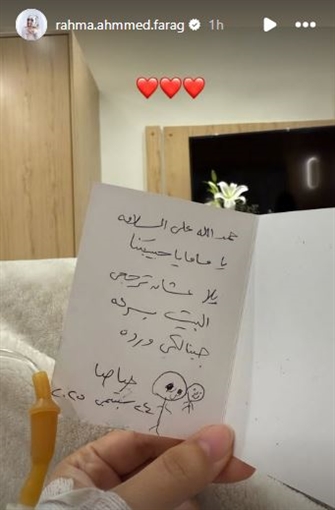 rahma.ahmmed.farag 1h
❤️❤️❤️
حمدالله على السلامه
يا ماما يا حبيبتنا
يلا عشان ترجعي
البيت بسرعه
جبنالكي ورده
٢٤ سبتمبر ٢٠٢٥